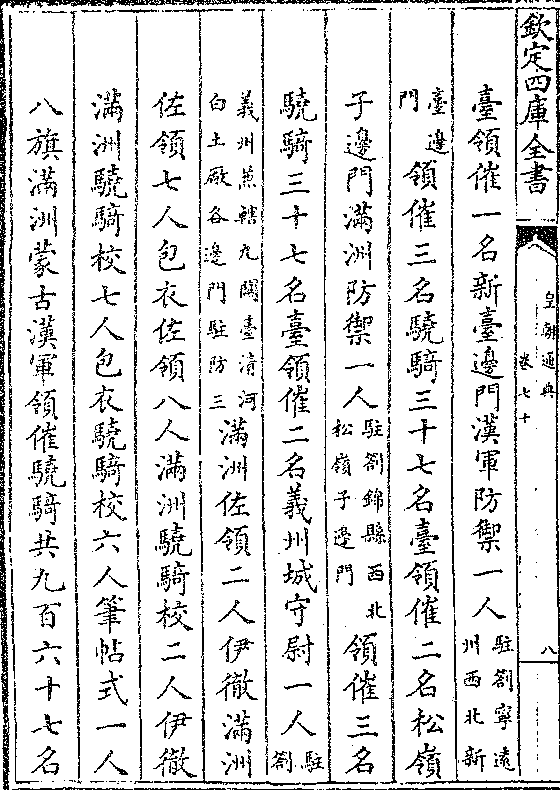 欽定四庫全書
皇朝通典
卷七十
八
臺領催一名新臺邊門漢軍防禦一人駐劄寧遠州西北新
臺邊門領催三名驍騎三十七名臺領催二名松嶺
子邊門滿洲防禦一人駐劄錦縣西北松嶺子邊門領催三名
驍騎三十七名臺領催二名義州城守尉一人駐劄
義州兼轄九關臺清河白土厰各邊門駐防三滿洲佐領二人伊徹滿洲
佐領七人包衣佐領八人滿洲驍騎校二人伊徹
滿洲驍騎校七人包衣驍騎校六人筆帖式一人
八旗滿洲蒙古漢軍領催驍騎共九百六十七名